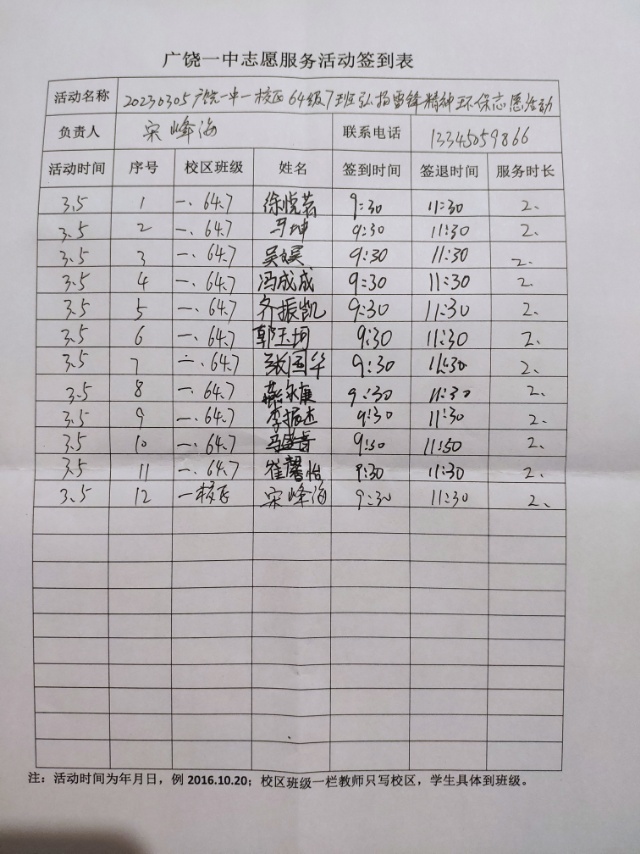 广饶一中志愿服务活动签到表
活动名称 20230305广饶一中一校区64级7班弘扬雷锋精神环保志愿活动
负责人 宋峰海 联系电话 13345059866
活动时间 序号 校区班级 姓名 签到时间 签退时间 服务时长
3.5 1 一、64.7 徐悦茗 9:30 11:30 2、
3.5 2 一、64.7 马坤 9:30 11:30 2、
3.5 3 一、64.7 吴娱 9:30 11:30 2、
3.5 4 一、64.7 冯成成 9:30 11:30 2、
3.5 5 一、64.7 齐振凯 9:30 11:30 2、
3.5 6 一、64.7 郭玉珂 9:30 11:30 2、
3.5 7 一、64.7 张国华 9:30 11:30 2、
3.5 8 一、64.7 9:30 11:30 2、
3.5 9 一、64.7 李振达 9:30 11:30 2、
3.5 10 一、64.7 9:30 11:30 2、
3.5 11 一、64.7 崔馨怡 9:30 11:30 2、
3.5 12 一校区 宋峰海 9:30 11:30 2、
注：活动时间为年月日，例 2016.10.20；校区班级一栏教师只写校区，学生具体到班级。